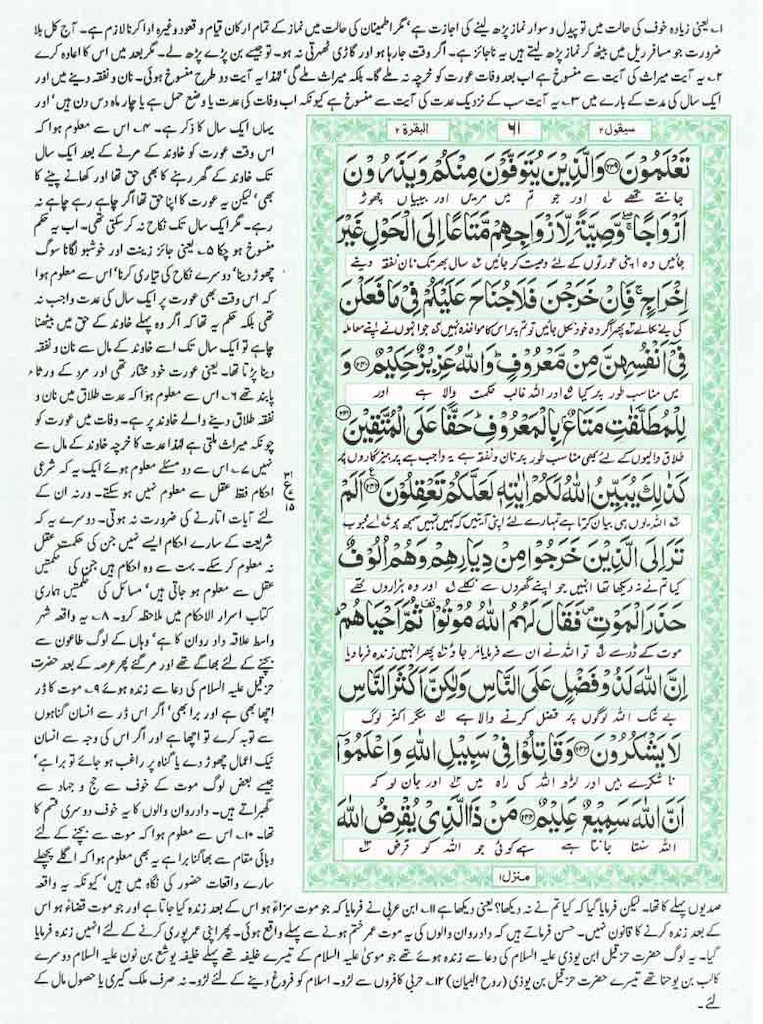 ۱۔ یعنی زیادہ خوف کی حالت میں تو پیدل و سوار نماز پڑھ لینے کی اجازت ہے، مگر اطمینان کی حالت میں نماز کے تمام ارکان قیام و قعود وغیرہ ادا کرنا لازم ہے۔ آج کل بلا
ضرورت جو مسافر ریل میں بیٹھ کر نماز پڑھ لیتے ہیں یہ ناجائز ہے۔ اگر وقت جا رہا ہو اور گاڑی ٹھہرتی نہ ہو۔ تو جیسے بن پڑے پڑھ لے۔ مگر بعد میں اس کا اعادہ کرے
۲۔ یہ آیت میراث کی آیت سے منسوخ ہے اب بعد وفات عورت کو خرچہ نہ ملے گا۔ بلکہ میراث ملے گی، لہٰذا یہ آیت دو طرح منسوخ ہوئی۔ نان و نفقہ دینے میں اور
ایک سال کی مدت کے بارے میں ۳۔ یہ آیت سب کے نزدیک عدت کی آیت سے منسوخ ہے کیونکہ اب وفات کی عدت یا وضع حمل ہے یا چار ماہ دس دن ہیں، اور
یہاں ایک سال کا ذکر ہے۔ ۴۔ اس سے معلوم ہوا کہ
اس وقت عورت کو خاوند کے مرنے کے بعد ایک سال
تک خاوند کے گھر رہنے کا بھی حق تھا اور کھانے پینے کا
بھی، لیکن یہ عورت کا اپنا حق تھا اگر چاہے رہے چاہے نہ
رہے۔ مگر ایک سال تک نکاح نہ کر سکتی تھی۔ اب یہ حکم
منسوخ ہو چکا ۵۔ یعنی جائز زینت اور خوشبو لگانا سوگ
چھوڑ دینا، دوسرے نکاح کی تیاری کرنا، اس سے معلوم ہوا
کہ اس وقت بھی عورت پر ایک سال کی عدت واجب نہ
تھی بلکہ حکم یہ تھا کہ اگر وہ پہلے خاوند کے حق میں بیٹھنا
چاہے تو ایک سال تک اسے خاوند کے مال سے نان و نفقہ
دینا پڑتا تھا۔ یعنی عورت خود مختار تھی اور مرد کے ورثاء
پابند تھے ۶۔ اس سے معلوم ہوا کہ عدت طلاق میں نان و
نفقہ طلاق دینے والے خاوند پر ہے۔ وفات میں عورت کو
چونکہ میراث ملتی ہے لہٰذا عدت کا خرچہ خاوند کے مال سے
نہیں ۷۔ اس سے دو مسئلے معلوم ہوئے ایک یہ کہ شرعی
احکام فقط عقل سے معلوم نہیں ہو سکتے۔ ورنہ ان کے
لئے آیات اتارنے کی ضرورت نہ ہوتی۔ دوسرے یہ کہ
شریعت کے سارے احکام ایسے نہیں جن کی حکمت عقل
نہ معلوم کر سکے۔ بہت سے وہ احکام ہیں جن کی حکمتیں
عقل سے معلوم ہو جاتی ہیں، مسائل کی حکمتیں ہماری
کتاب اسرار الاحکام میں ملاحظہ کرو۔ ۸۔ یہ واقعہ شہر
واسط علاقہ داد روان کا ہے، وہاں کے لوگ طاعون سے
بچنے کے لئے بھاگے تھے اور مر گئے پھر عرصہ کے بعد حضرت
حزقیل علیہ السلام کی دعا سے زندہ ہوئے ۹۔ موت کا ڈر
اچھا بھی ہے اور برا بھی، اگر اس ڈر سے انسان گناہوں
سے توبہ کرے تو اچھا ہے اور اگر اس کی وجہ سے انسان
نیک اعمال چھوڑ دے یا گناہ پر راغب ہو جائے تو برا ہے،
جیسے بعض لوگ موت کے خوف سے حج و جہاد سے
گھبراتے ہیں۔ داد روان والوں کا یہ خوف دوسری قسم کا
تھا۔ ۱۰۔ اس سے معلوم ہوا کہ موت سے بچنے کے لئے
وبائی مقام سے بھاگنا برا ہے یہ بھی معلوم ہوا کہ اگلے پچھلے
سارے واقعات حضور کی نگاہ میں ہیں، کیونکہ یہ واقعہ
۱۵
سیقول ۲
۶۱
البقرة ۲
تَعْلَمُوْنَ ۝۲۳۹ وَالَّذِيْنَ يُتَوَفَّوْنَ مِنْكُمْ وَيَذَرُوْنَ
جانتے تھے ۱ اور جو تم میں مریں اور بیبیاں چھوڑ
اَزْوَاجًا ۖ وَّصِيَّةً لِّاَزْوَاجِهِمْ مَّتَاعًا اِلَى الْحَوْلِ غَيْرَ
جائیں وہ اپنی عورتوں کے لئے وصیت کر جائیں ۲ سال بھر تک نان نفقہ دینے
اِخْرَاجٍ ۚ فَاِنْ خَرَجْنَ فَلَا جُنَاحَ عَلَيْكُمْ فِيْ مَا فَعَلْنَ
کی بے نکالے ۳ پھر اگر وہ خود نکل جائیں تو تم پر اس کا مواخذہ نہیں ۴ جو انہوں نے اپنے معاملہ
فِيْٓ اَنْفُسِهِنَّ مِنْ مَّعْرُوْفٍ ۭ وَاللّٰهُ عَزِيْزٌ حَكِيْمٌ ۝۲۴۰ وَ
میں مناسب طور پر کیا ۵ اور اللہ غالب حکمت والا ہے اور
لِلْمُطَلَّقٰتِ مَتَاعٌۢ بِالْمَعْرُوْفِ ۭ حَقًّا عَلَى الْمُتَّقِيْنَ ۝۲۴۱
طلاق والیوں کے لئے بھی مناسب طور پر نان و نفقہ ہے یہ واجب ہے پرہیزگاروں پر
كَذٰلِكَ يُبَيِّنُ اللّٰهُ لَكُمْ اٰيٰتِهٖ لَعَلَّكُمْ تَعْقِلُوْنَ ۝۲۴۲ اَلَمْ
۶ اللہ یوں ہی بیان کرتا ہے تمہارے لئے اپنی آیتیں کہ کہیں تمہیں سمجھ ہو ۷ اے محبوب
تَرَ اِلَى الَّذِيْنَ خَرَجُوْا مِنْ دِيَارِهِمْ وَهُمْ اُلُوْفٌ
کیا تم نے نہ دیکھا تھا انہیں جو اپنے گھروں سے نکلے ۸ اور وہ ہزاروں تھے
حَذَرَ الْمَوْتِ ۠ فَقَالَ لَهُمُ اللّٰهُ مُوْتُوْا ۣ ثُمَّ اَحْيَاهُمْ ۭ
موت کے ڈر سے ۹ تو اللہ نے ان سے فرمایا مر جاؤ ۱۰ پھر انہیں زندہ فرما دیا
اِنَّ اللّٰهَ لَذُوْ فَضْلٍ عَلَى النَّاسِ وَلٰكِنَّ اَكْثَرَ النَّاسِ
بے شک اللہ لوگوں پر فضل کرنے والا ہے ۱۱ مگر اکثر لوگ
لَا يَشْكُرُوْنَ ۝۲۴۳ وَقَاتِلُوْا فِيْ سَبِيْلِ اللّٰهِ وَاعْلَمُوْٓا
ناشکرے ہیں اور لڑو اللہ کی راہ میں ۱۲ اور جان لو کہ
اَنَّ اللّٰهَ سَمِيْعٌ عَلِيْمٌ ۝۲۴۴ مَنْ ذَا الَّذِيْ يُقْرِضُ اللّٰهَ
اللہ سنتا جانتا ہے ہے کوئی جو اللہ کو قرض
منزل ۱
صدیوں پہلے کا تھا۔ لیکن فرمایا گیا کہ کیا تم نے نہ دیکھا؟ یعنی دیکھا ہے ۱۱۔ ابن عربی نے فرمایا کہ جو موت سزاءً ہو اس کے بعد زندہ کیا جاتا ہے اور جو موت قضاءً ہو اس
کے بعد زندہ کرنے کا قانون نہیں۔ حسن فرماتے ہیں کہ داد روان والوں کی یہ موت عمر ختم ہونے سے پہلے واقع ہوئی۔ پھر اپنی عمر پوری کرنے کے لئے انہیں زندہ فرمایا
گیا۔ یہ لوگ حضرت حزقیل ابن یوذی علیہ السلام کی دعا سے زندہ ہوئے تھے جو موسیٰ علیہ السلام کے تیسرے خلیفہ تھے پہلے خلیفہ یوشع بن نون علیہ السلام دوسرے
کالب بن یوحنا تھے تیسرے حضرت حزقیل بن یوذی (روح البیان) ۱۲۔ حربی کافروں سے لڑو۔ اسلام کو فروغ دینے کے لئے لڑو۔ نہ صرف ملک گیری یا حصول مال کے
لئے۔